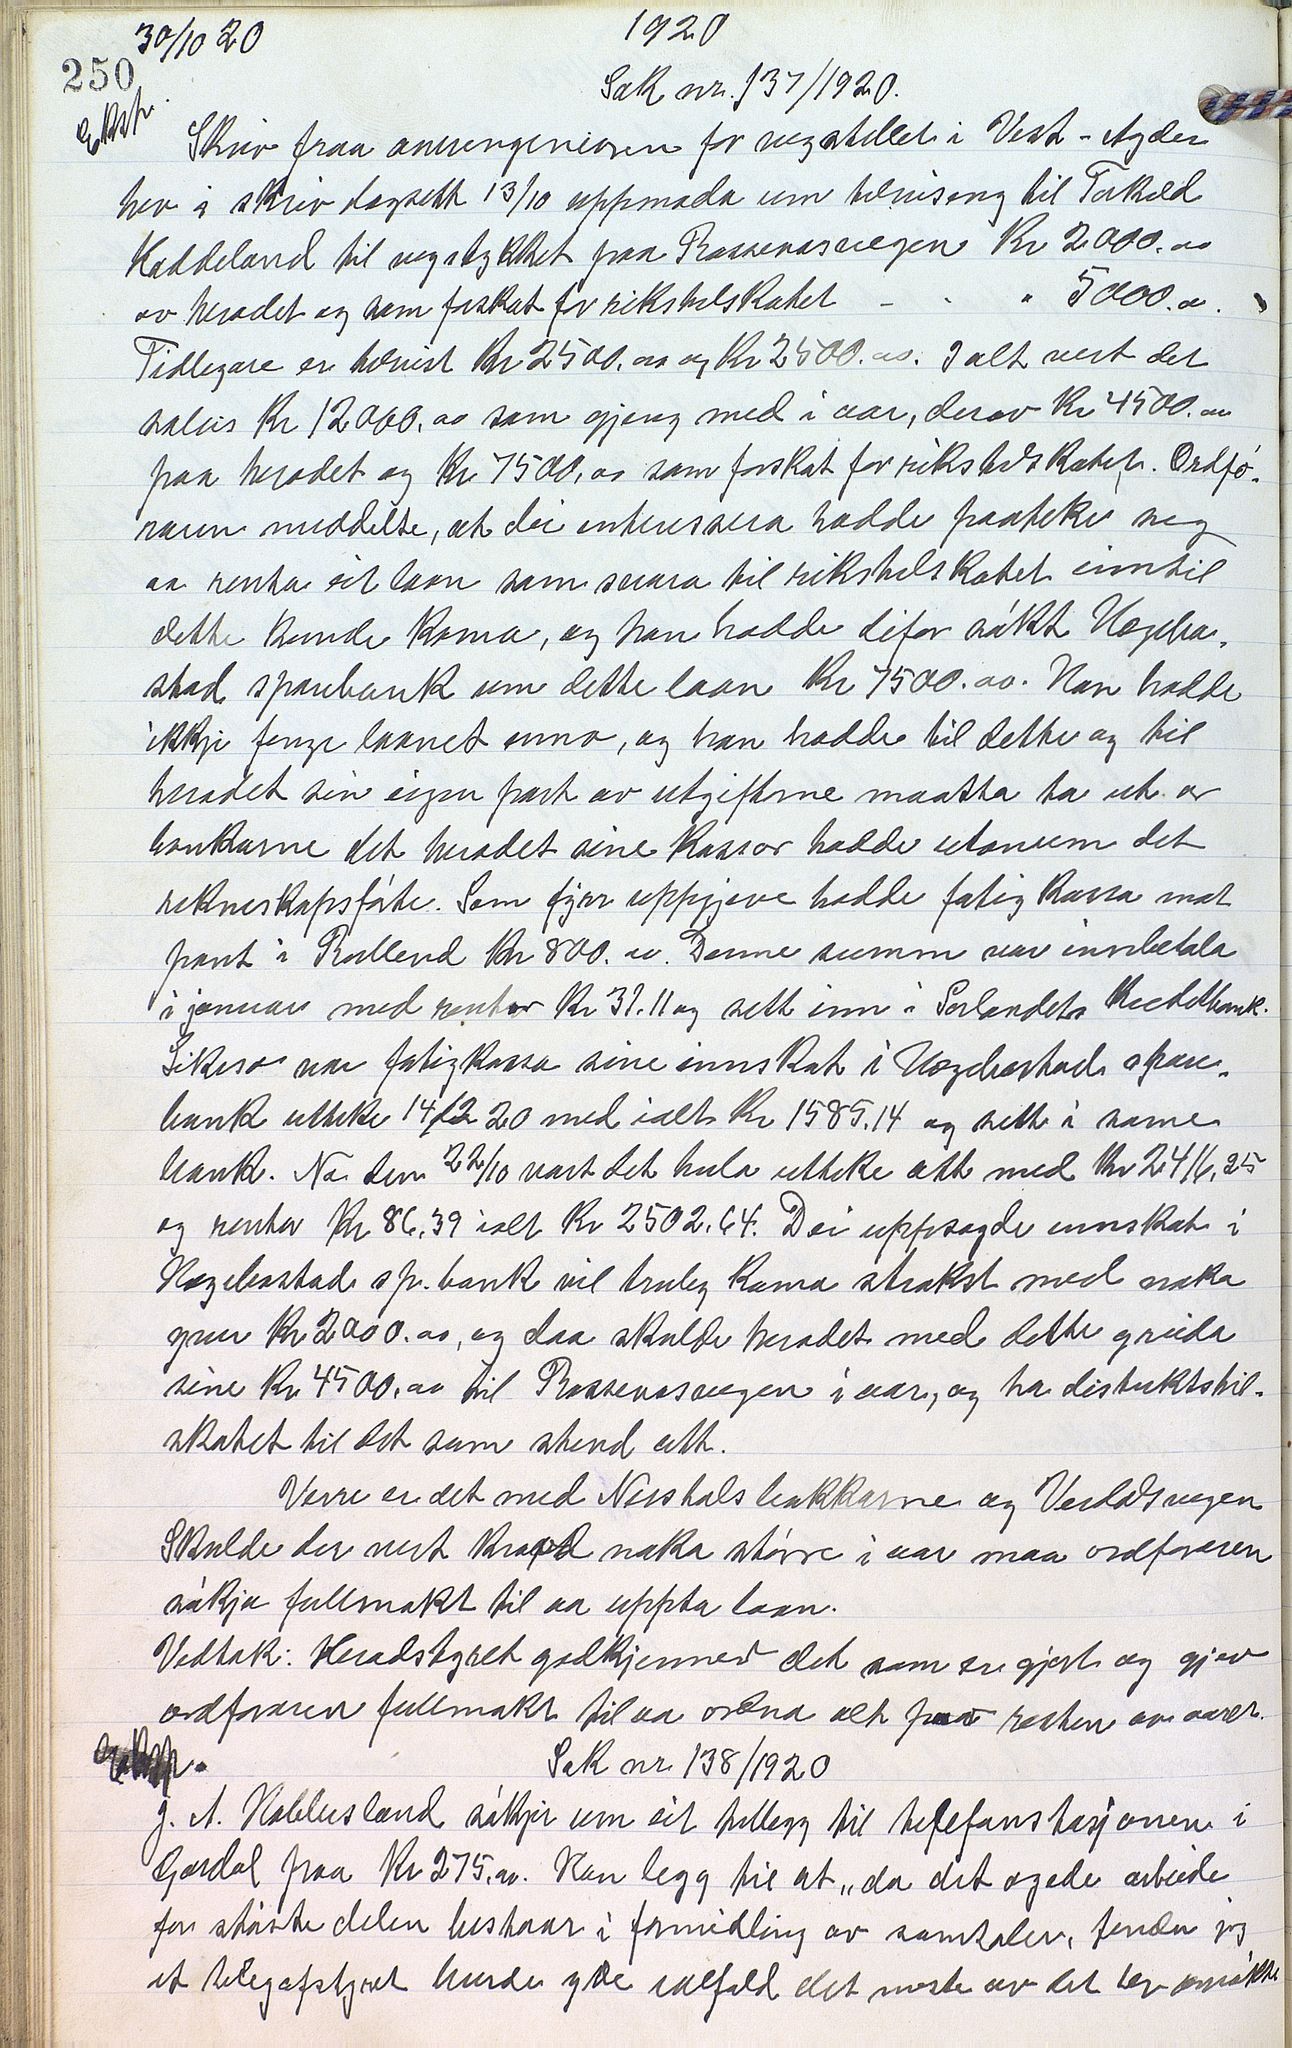 30/10 20
1920
250
Sak nr. 137/1920.
Ekstr.
Skriv fraa avd.ingeniören for vegstellet i Vest-Agder
hev i skriv dagsett 13/10 uppmoda um tilvising til Torkild
Haddeland til vegstykket paa Rossevasvegen Kr 2000.00
av heradet og som forskot for rikstilskotet - - " 5000.00.
Tidlegare er tilvist Kr 2500.00 og Kr 2500.00. I alt vert det
soleis Kr 12000.00 som gjeng med i aar, derav Kr 4500.00
paa heradet og Kr 7500.00 som forskot for rikstilskotet. Ordfö-
raren meddelte, at dei interessera hadde paateke seg
aa renta eit laan som svara til rikstilskotet inntil
dette kunde koma, og han hadde difor sökt Hægebo-
stad sparebank um dette laan Kr 7500.00. Han hadde
ikkje fenge laanet enno, og han hadde til dette og til
heradet sin eigen part av utgifterne maatta ta ut av
bankarne det heradet sine kassor hadde utanum det
rekneskapsförte. Som fyrr uppgjeve hadde fatigkassa mot
pant i Rulland Kr 800.00. Denne summ var innbetala
i januar med rentor Kr 31.11 og sett inn i Sorlandets Kreditbank.
Likeso var fatigkassa sine innskot i Hægebostad spare-
bank utteke 14/2 20 med ialt Kr 1585.14 og sett i same
bank. No den 22/10 vart det hela utteke att med Kr 2416,25
og rentor Kr 86.39 ialt Kr 2502.64. Dei uppsagde innskot i
Hægebostad sp.bank vil truleg koma strakst med noko
yver Kr 2000.00, og daa skulde heradet med dette greida
sine Kr 4500.00 til Rossevasvegen i aar, og ha distriktstil-
skotet til det som stend att.
Verre er det med Nesshalsbakkarne og Verdalsvegen
Skulde der vert kravd noko större i aar maa ordforaren
sökja fullmakt til aa uppta laan.
Vedtak: Heradstyret godkjenner det som er gjort og gjev
ordforaren fullmakt til aa ordna alt paa resten av aaret.
Ekstr.
Sak nr. 138/1920
J. A. Hobbesland sökjer um eit tillegg til telefonstasjonen i
Gardal paa Kr 275.00. Han legg til at „da det øgede arbeide
for störste delen bestaar i formidling av samtaler, finder jeg
at telegrafstyret burde yde ialfald det meste av det her ansökte